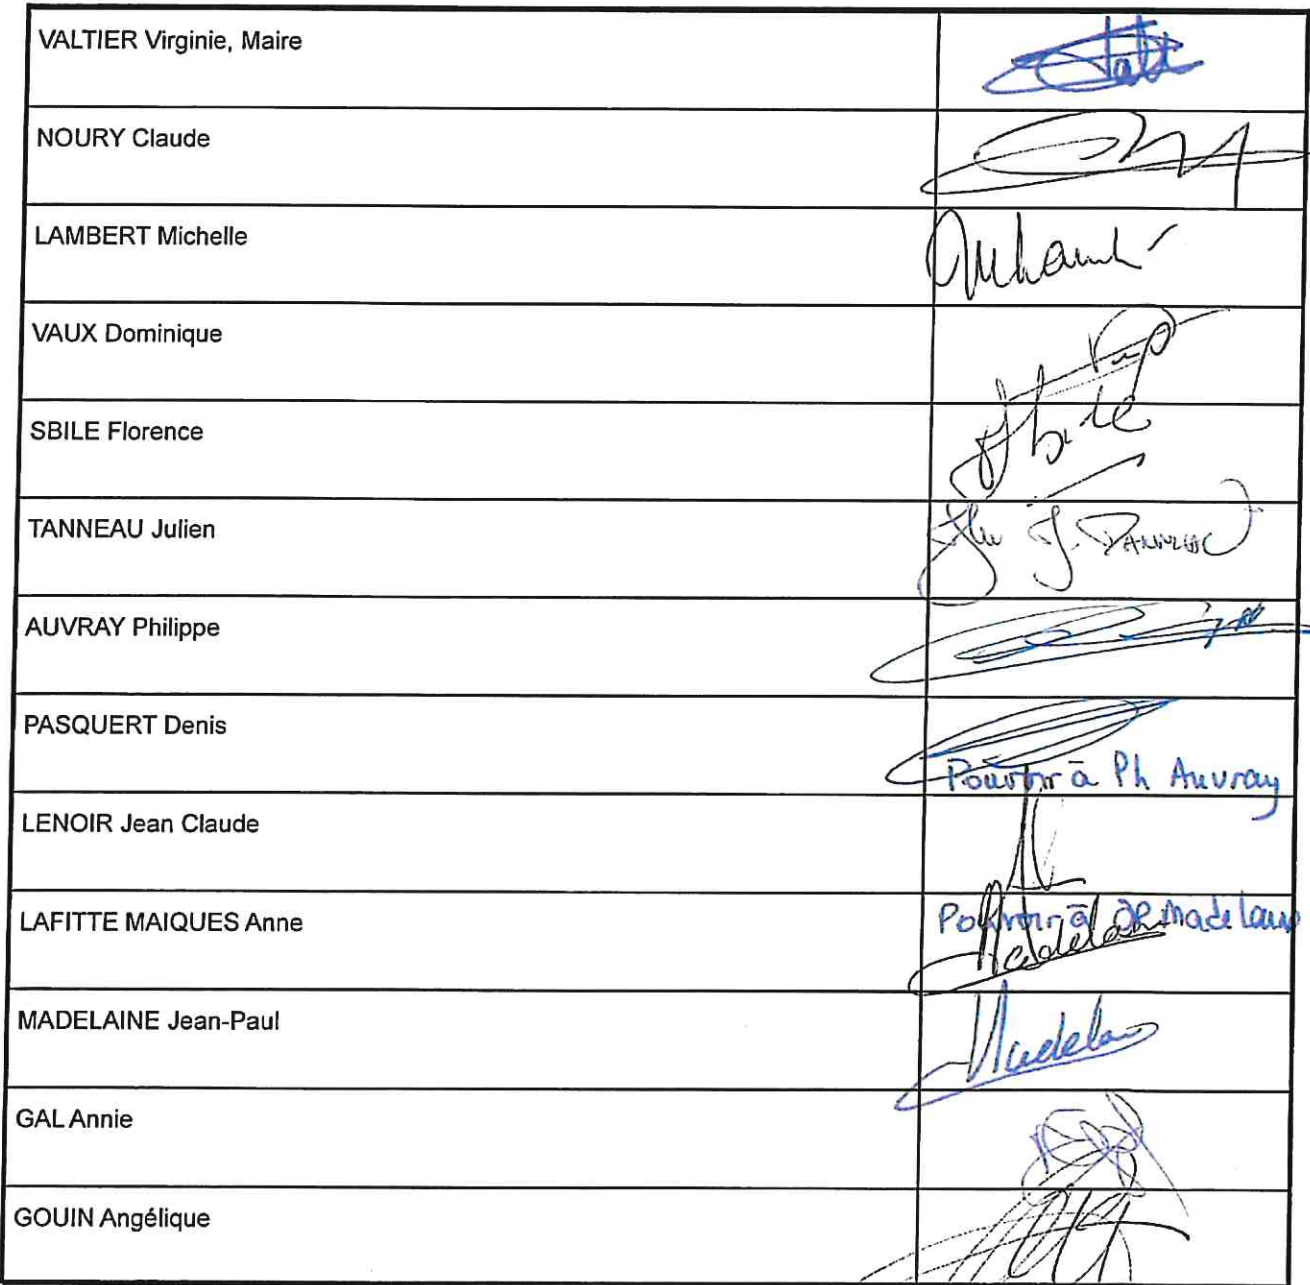 VALTIER Virginie, Maire
NOURY Claude
LAMBERT Michelle
VAUX Dominique
SBILE Florence
Sbile
TANNEAU Julien
J. TANNEAU
AUVRAY Philippe
PASQUERT Denis
Pouvoir à Ph Auvray
LENOIR Jean Claude
LAFITTE MAIQUES Anne
Pouvoir à JP Madelaine
MADELAINE Jean-Paul
GAL Annie
GOUIN Angélique